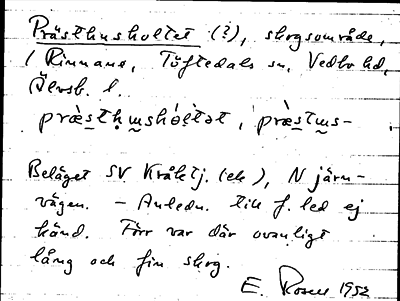 Prästhusholtet (?), skogsområde,
i Rinnane, Töftedals sn, Vedbo hd,
Älvsb. l.
præ̀stḥu̲shòḷtət, præ̀stu̲s-
Beläget SV Kråktj. (ek), N järn-
vägen. – Anledn. till f. led ej
känd. Förr var där ovanligt
lång och fin skog.
E. Rosell 1952